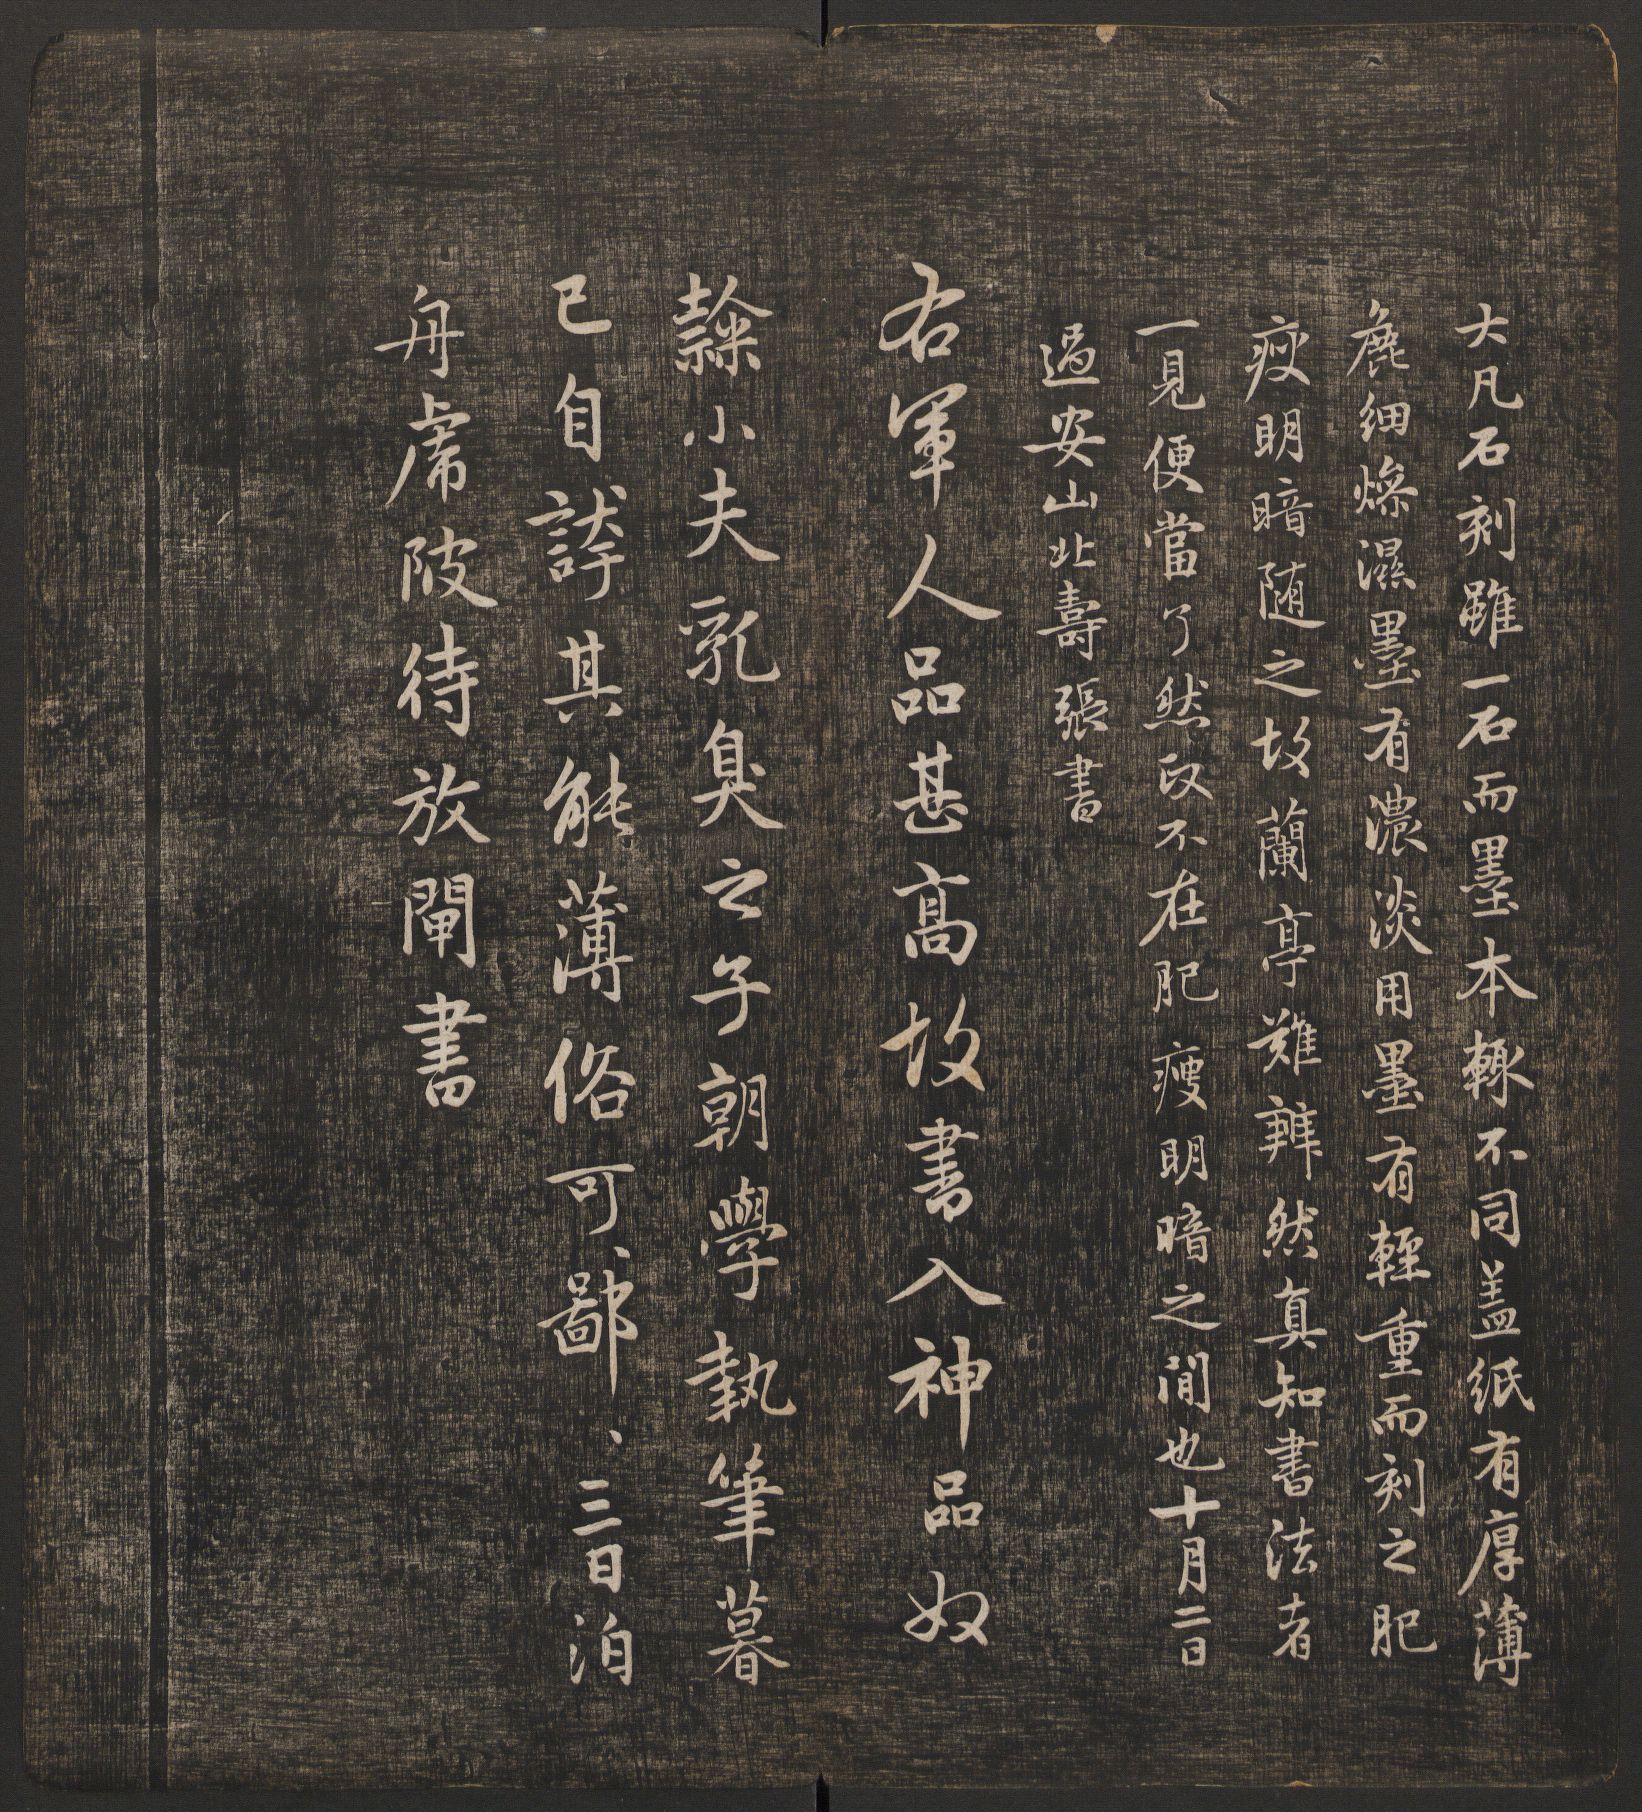 大凡石刻雖一石而墨本輒不同盖紙有厚薄
麁細燥濕墨有濃淡用墨有輕重而刻之肥
瘦明暗随之故蘭亭難辨然真知書法者
一見便當了然政不在肥瘦明暗之間也十月二日
過安山北壽張書
右軍人品甚高故書入神品奴
隸小夫乳臭之子朝學執筆暮
已自誇其能薄俗可、鄙、三日泊
舟虖陂待放閘書